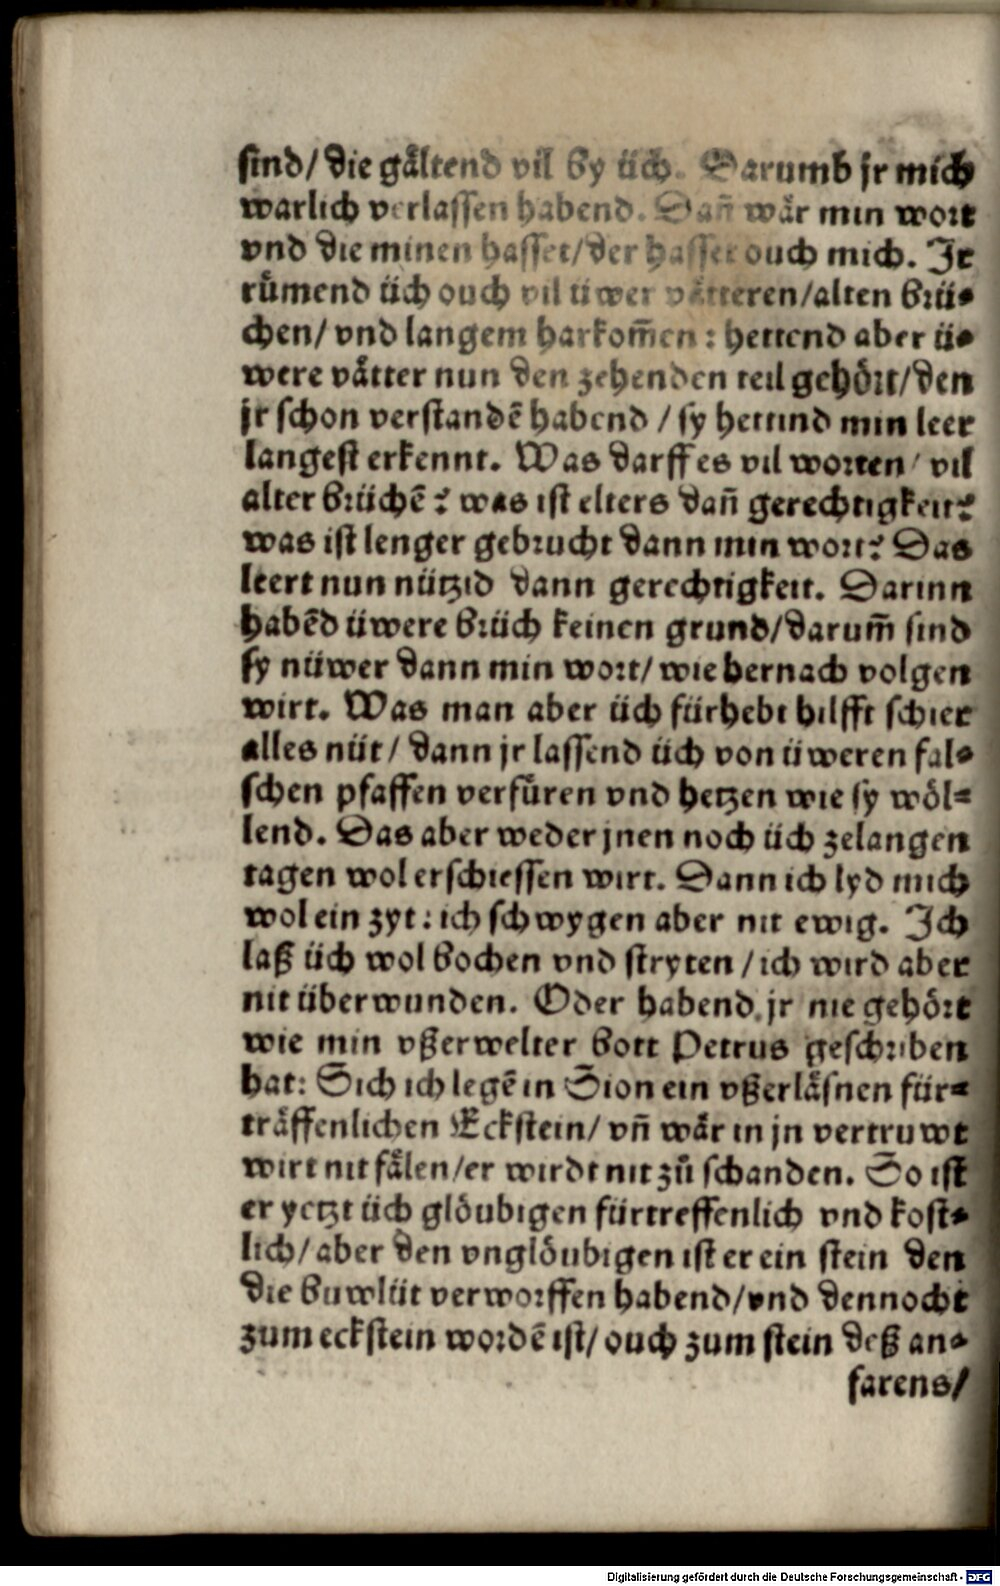 sind/ die gältend vil by üch. Darumb jr mich
warlich verlassen habend. Dañ wär min wort
vnd die minen hasset/ der hasset ouch mich. Ir
růmend üch ouch vil üwer vätteren/ alten brü⸗
chen/ vnd langem harkom̃en: hettend aber ü⸗
were vätter nun den zehenden teil gehört/ den
jr schon verstandē habend / sy hettind min leer
langest erkennt. Was darff es vil worten/ vil
alter brüchē? was ist elters dañ gerechtigkeit?
was ist lenger gebrucht dann min wort? Das
leert nun nützid dann gerechtigkeit. Darinn
habēd üwere brüch keinen grund/ darum̃ sind
sy nüwer dann min wort/ wie hernach volgen
wirt. Was man aber üch fürhebt hilfft schier
alles nüt/ dann jr lassend üch von üweren fal⸗
schen pfaffen verfüren vnd hetzen wie sy wöl⸗
lend. Das aber weder jnen noch üch zelangen
tagen wol erschiessen wirt. Dann ich lyd mich
wol ein zyt: ich schwygen aber nit ewig. Ich
laß üch wol bochen vnd stryten / ich wird aber
nit überwunden. Oder habend jr nie gehört
wie min vßerwelter bott Petrus geschriben
hat: Sich ich legē in Sion ein vßerläsnen für⸗
träffenlichen Eckstein/ vñ wär in jn vertruwt
wirt nit fälen/ er wirdt nit zů schanden. So ist
er yetzt üch glöubigen fürtreffenlich vnd kost⸗
lich/ aber den vnglöubigen ist er ein stein den
die buwlüt verworffen habend/ vnd dennocht
zum eckstein wordē ist/ ouch zum stein deß an⸗
farens/
Digitalisierung gefördert durch die Deutsche Forschungsgemeinschaft - DFG